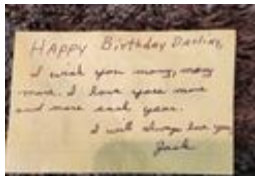 Happy Birthday Darling,
I wish you many, many
more. I love you more
and more each year.
I will always love you,
Jack